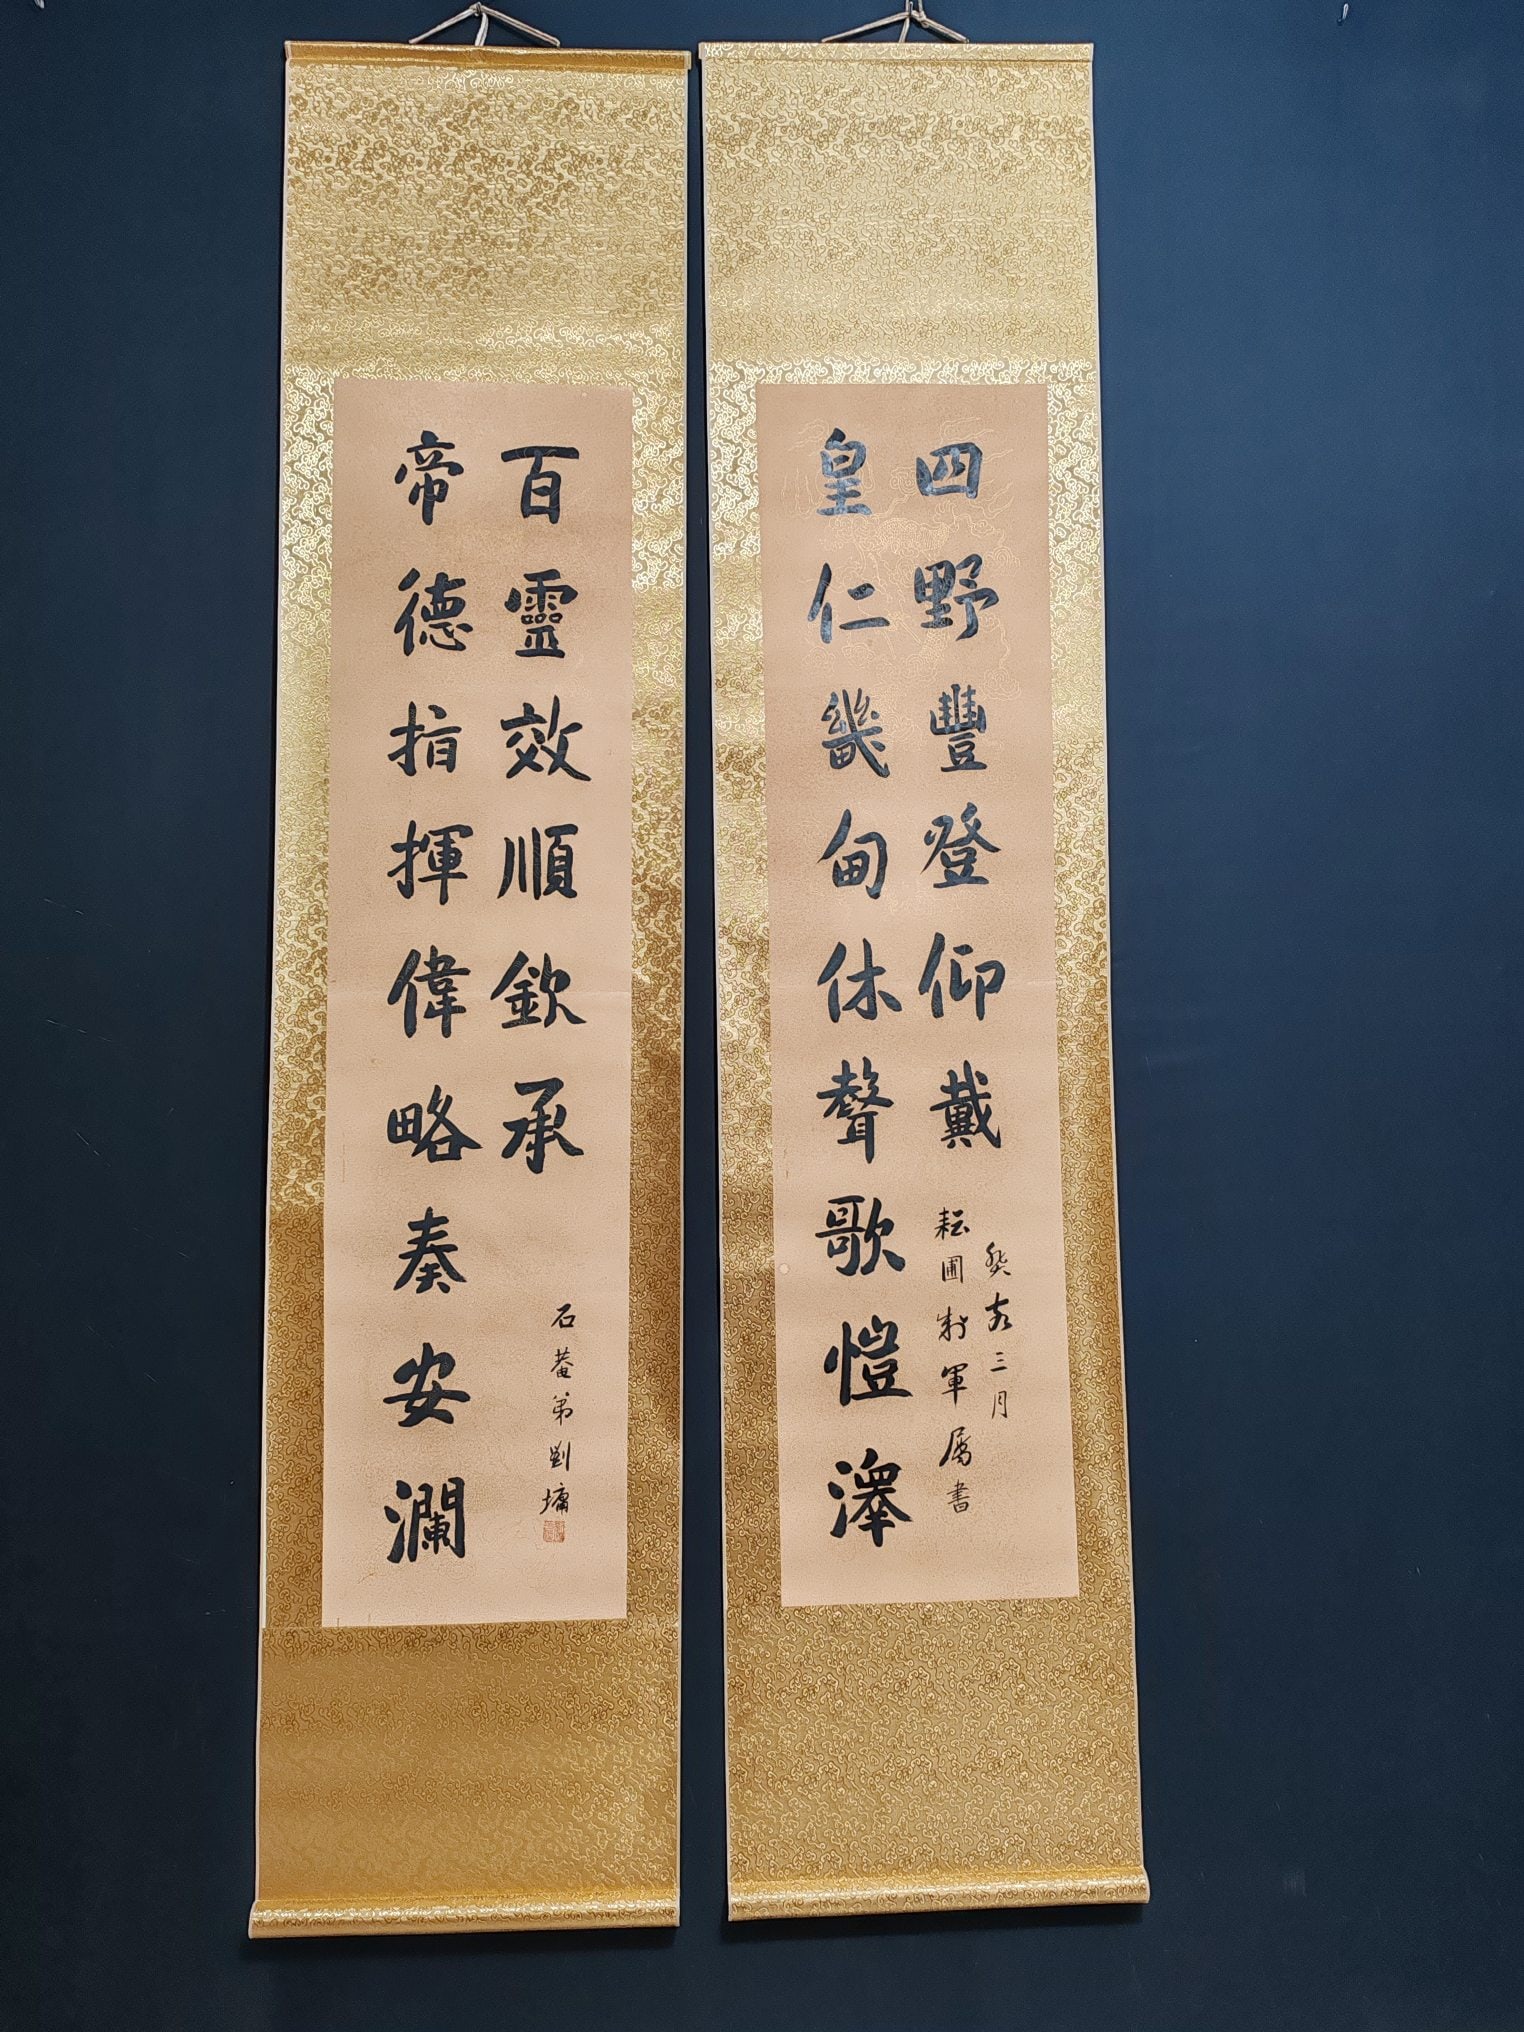 四野豐登仰戴
皇仁畿甸休聲歌愷澤
癸亥三月
耘圃將軍属書
百靈效順欽承
帝德指揮偉略奏安瀾
石菴弟劉墉